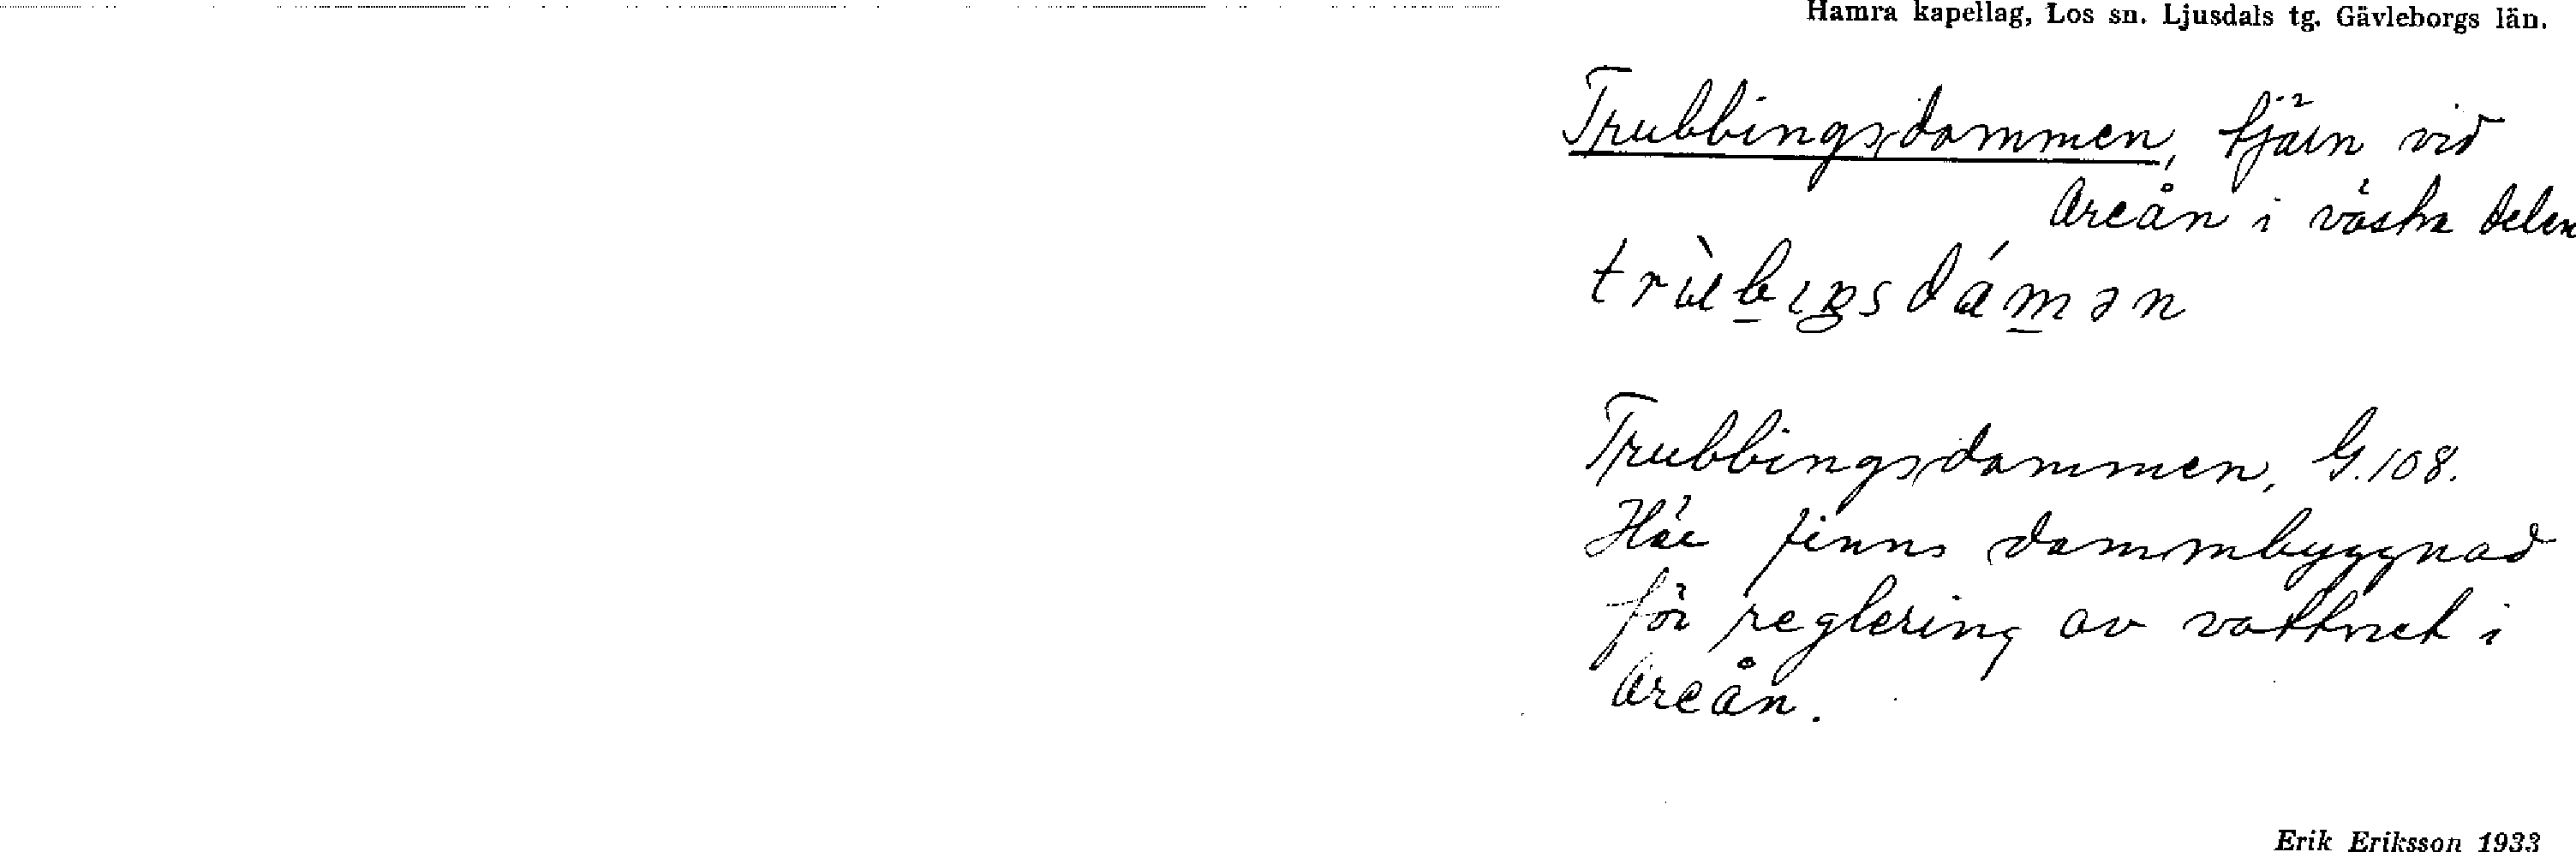 Hamra kapellag, Los sn. Ljusdals tg. Gävleborgs län.
Trubbingsdammen, tjärn vid
Oreån i västra delen
trùbıŋsdámən
Trubbingsdammen, G.108.
Här finns dammbyggnad
för reglering av vattnet i
Oreån.
Erik Eriksson 1933